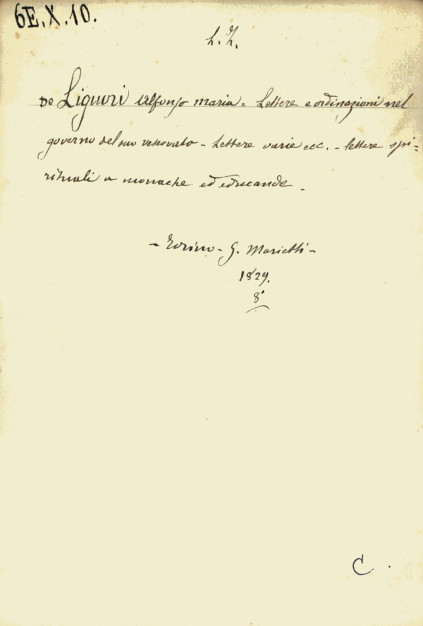 6E.X.10.
L. Z.
De Liguori Alfonso Maria = Lettere e ordinazioni nel
governo del suo vescovato - Lettere varie ecc. - lettere spi=
rituali a monache ed educande -
- Torino - G. Marietti -
1829.
8°
C.